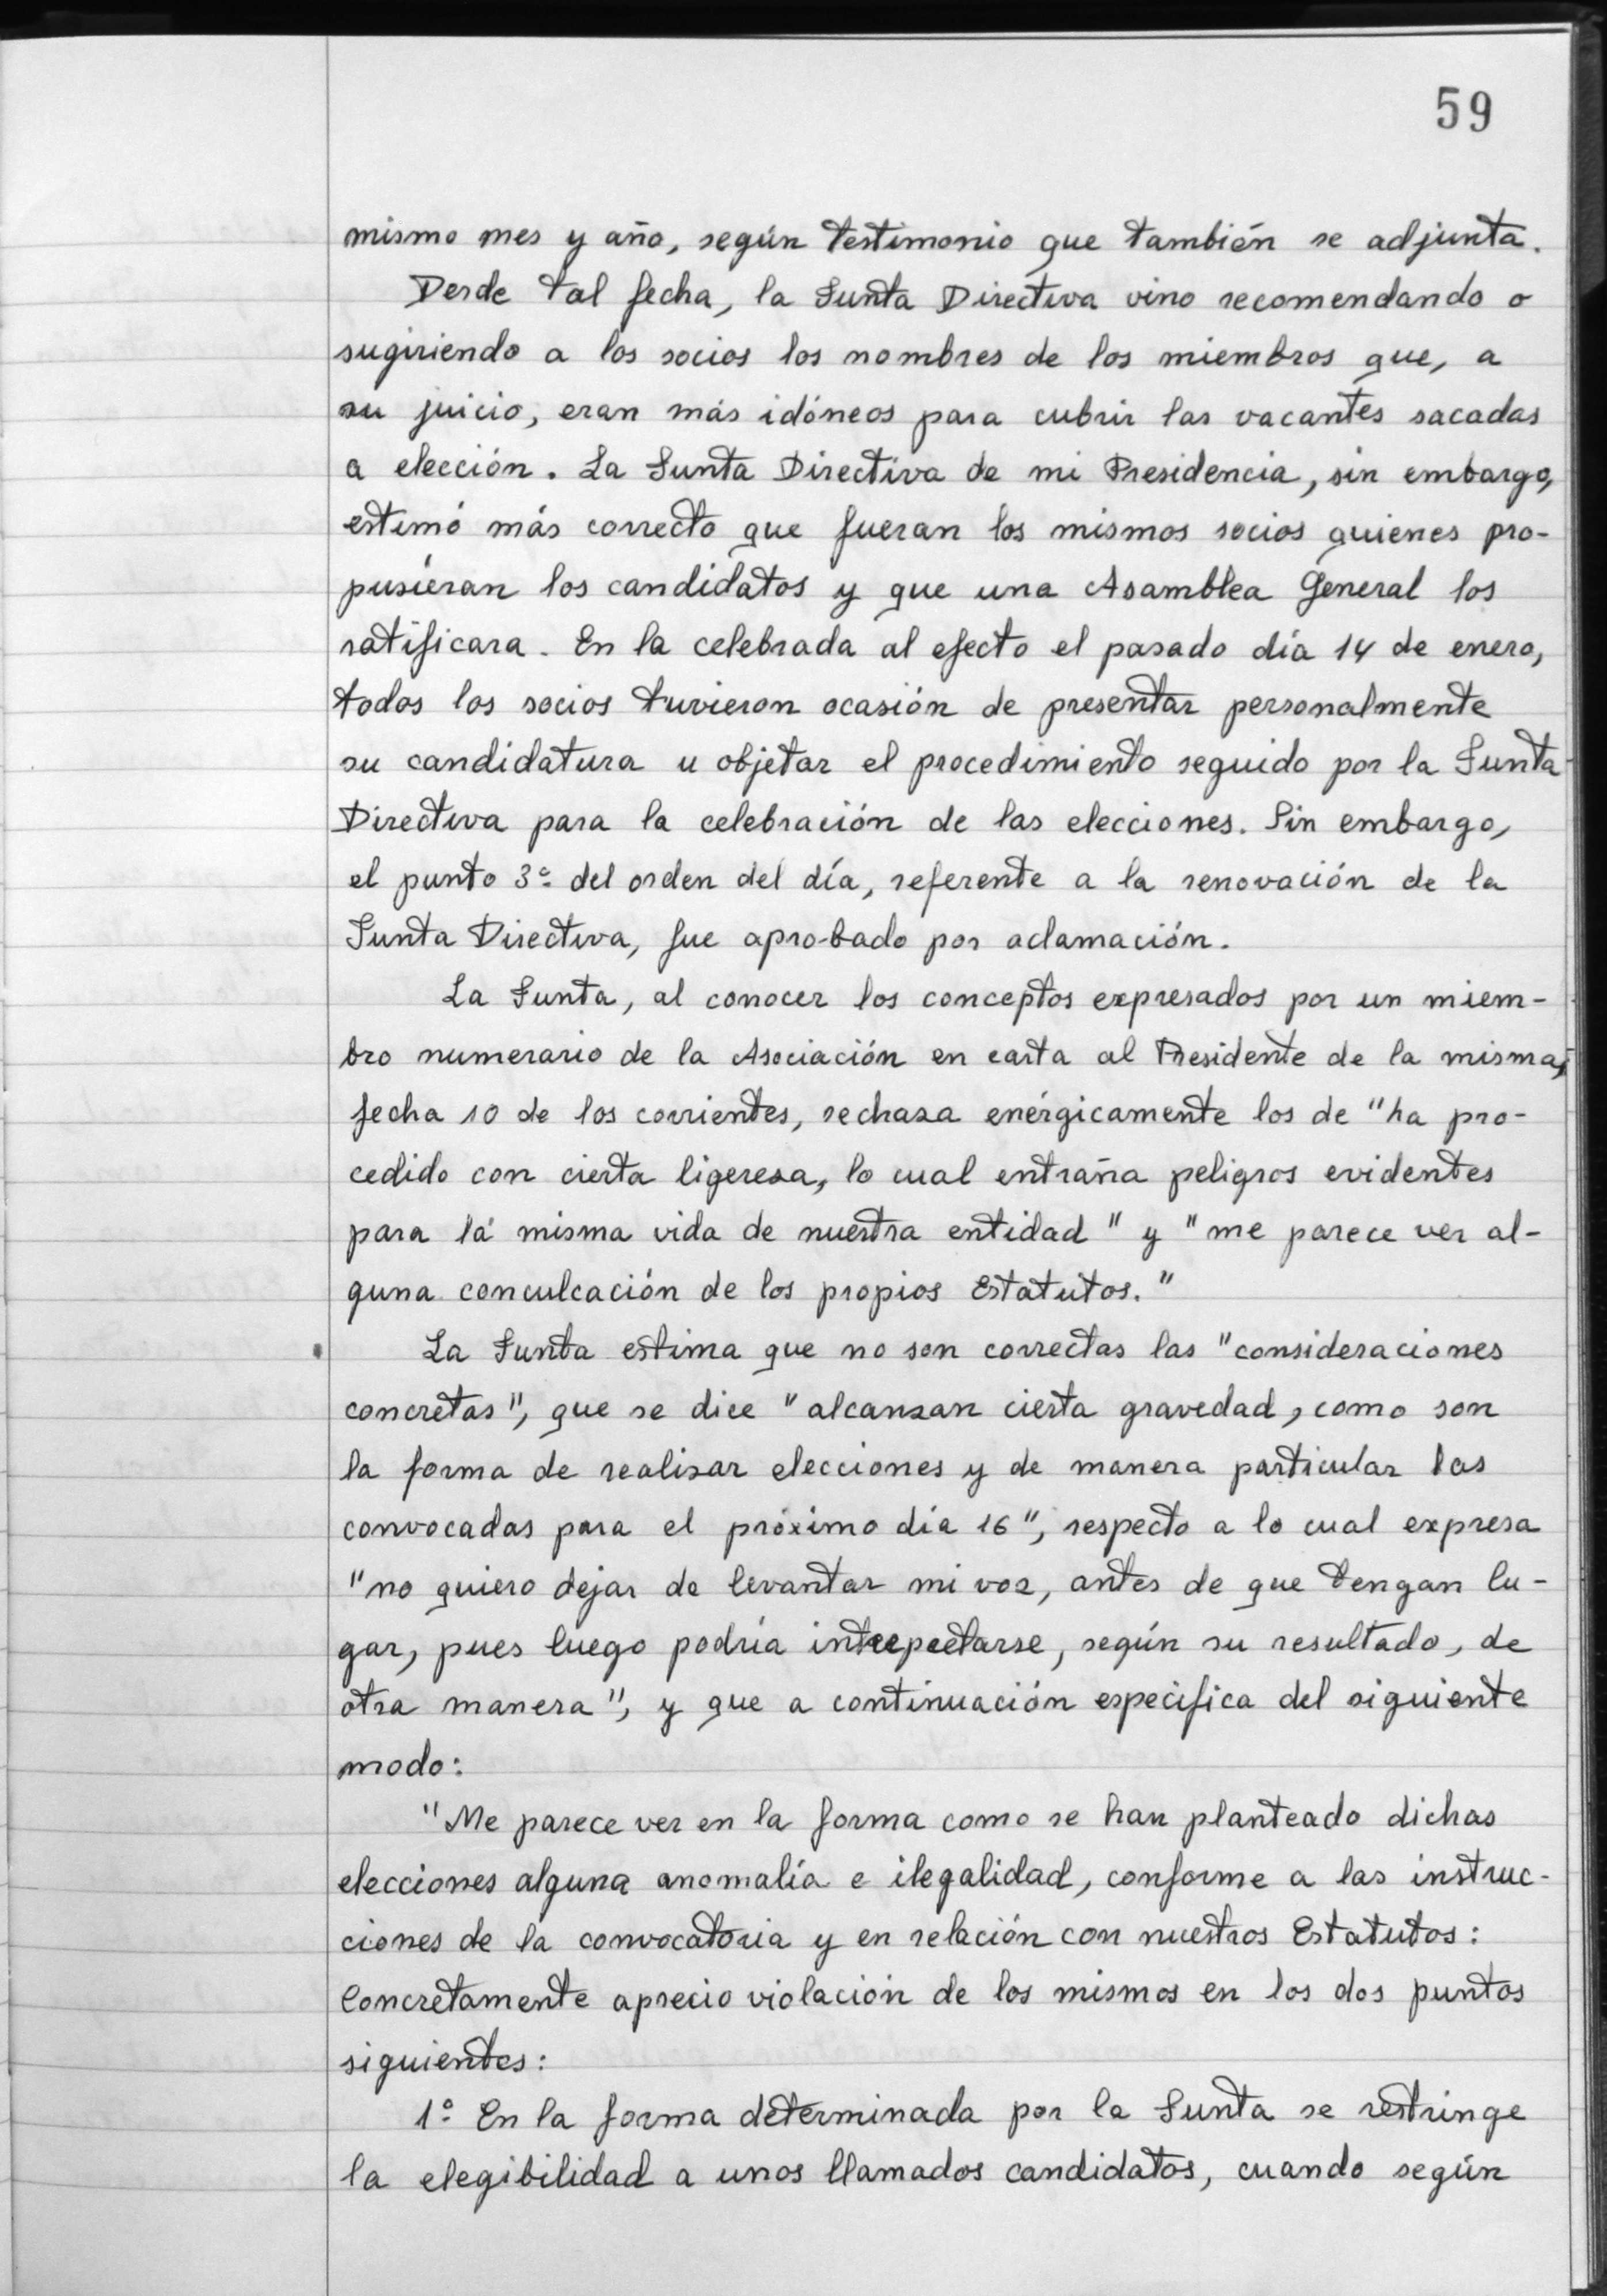 59
mismo mes y año, según testimonio que también se adjunta.
Desde tal fecha, la Junta Directiva vino recomendando o
sugiriendo a los socios los nombres de los miembros que, a
su juicio, eran más idóneos para cubrir las vacantes sacadas
a elección. La Junta Directiva de mi Presidencia, sin embargo,
estimó más correcto que fueran los mismos socios quienes pro-
pusieran los candidatos y que una Asamblea General los
ratificara. En la celebrada al efecto el pasado día 14 de enero,
todos los socios tuvieron ocasión de presentar personalmente
su candidatura u objetar el procedimiento seguido por la Junta
Directiva para la celebración de las elecciones. Sin embargo,
el punto 3º del orden del día, referente a la renovación de la
Junta Directiva, fue aprobado por aclamación.
La Junta, al conocer los conceptos expresados por un miem-
bro numerario de la Asociación en carta al Presidente de la misma,
fecha 10 de los corrientes, rechaza enérgicamente los de "ha pro-
cedido con cierta ligereza, lo cual entraña peligros evidentes
para la misma vida de nuestra entidad" y "me parece ver al-
guna conculcación de los propios Estatutos."
La Junta estima que no son correctas las "consideraciones
concretas", que se dice "alcanzan cierta gravedad, como son
la forma de realizar elecciones y de manera particular las
convocadas para el próximo día 16", respecto a lo cual expresa
"no quiero dejar de levantar mi voz, antes de que tengan lu-
gar, pues luego podría interpretarse, según su resultado, de
otra manera", y que a continuación especifica del siguiente
modo:
"Me parece ver en la forma como se han planteado dichas
elecciones alguna anomalía e ilegalidad, conforme a las instruc-
ciones de la convocatoria y en relación con nuestros Estatutos:
Concretamente aprecio violación de los mismos en los dos puntos
siguientes:
1º En la forma determinada por la Junta se restringe
la elegibilidad a unos llamados candidatos, cuando según